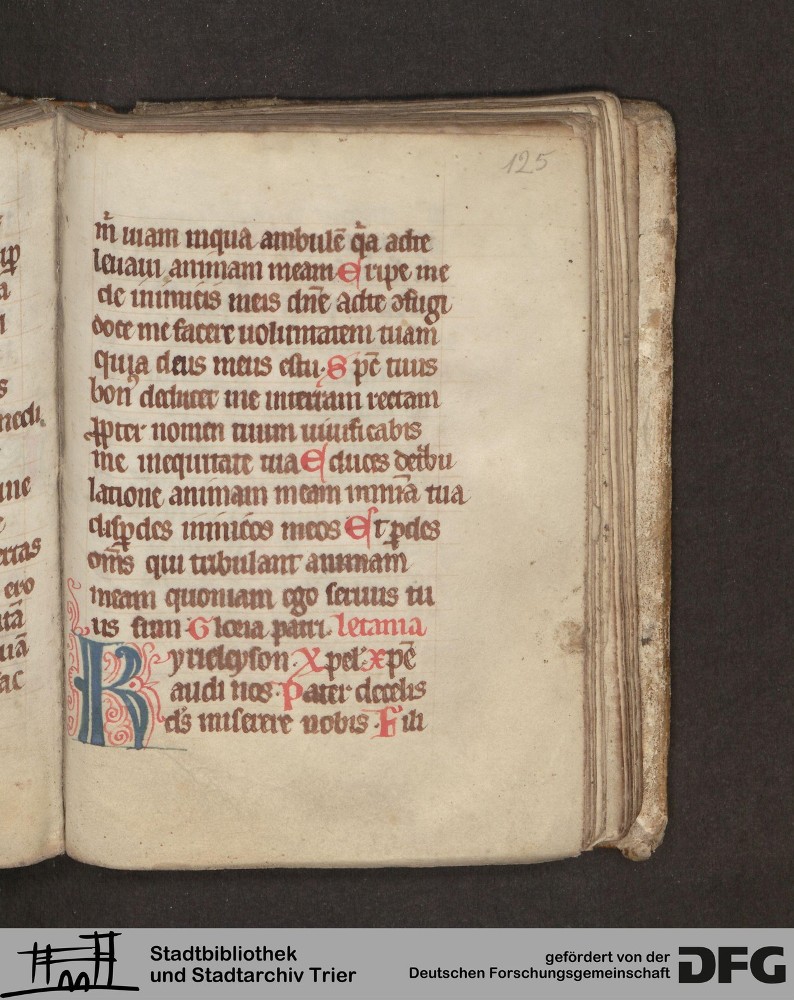 125
m̄ uiam inqua ambulē q̄a adte
leuaui animam meam Eripe me
de inimicis meis dn̄e adte ↄfugi
doce me facere uoluntatem tuam
quia deus meus estu. Sp̄c tuus
bonꝰ deducet me interram rectam
ꝓpter nomen tuum uiuificabis
me inequitate tua Educes detͥbu
latione animam meam inmīa tua
disꝑdes inimicos meos Et ꝑdes
om̄s qui tribulant animam
meam quoniam ego seruus tu
us sum Gloria patri. letania
Kyrieleyson. Xpel' xpē
audi nos. Pater decelis
ds̄ miserere nobis. Fili
ip
a
s
medi
me
ertas
ero
tā
uā
ac
Stadtbibliothek
und Stadtarchiv Trier
gefördert von der
Deutschen Forschungsgemeinschaft
DFG